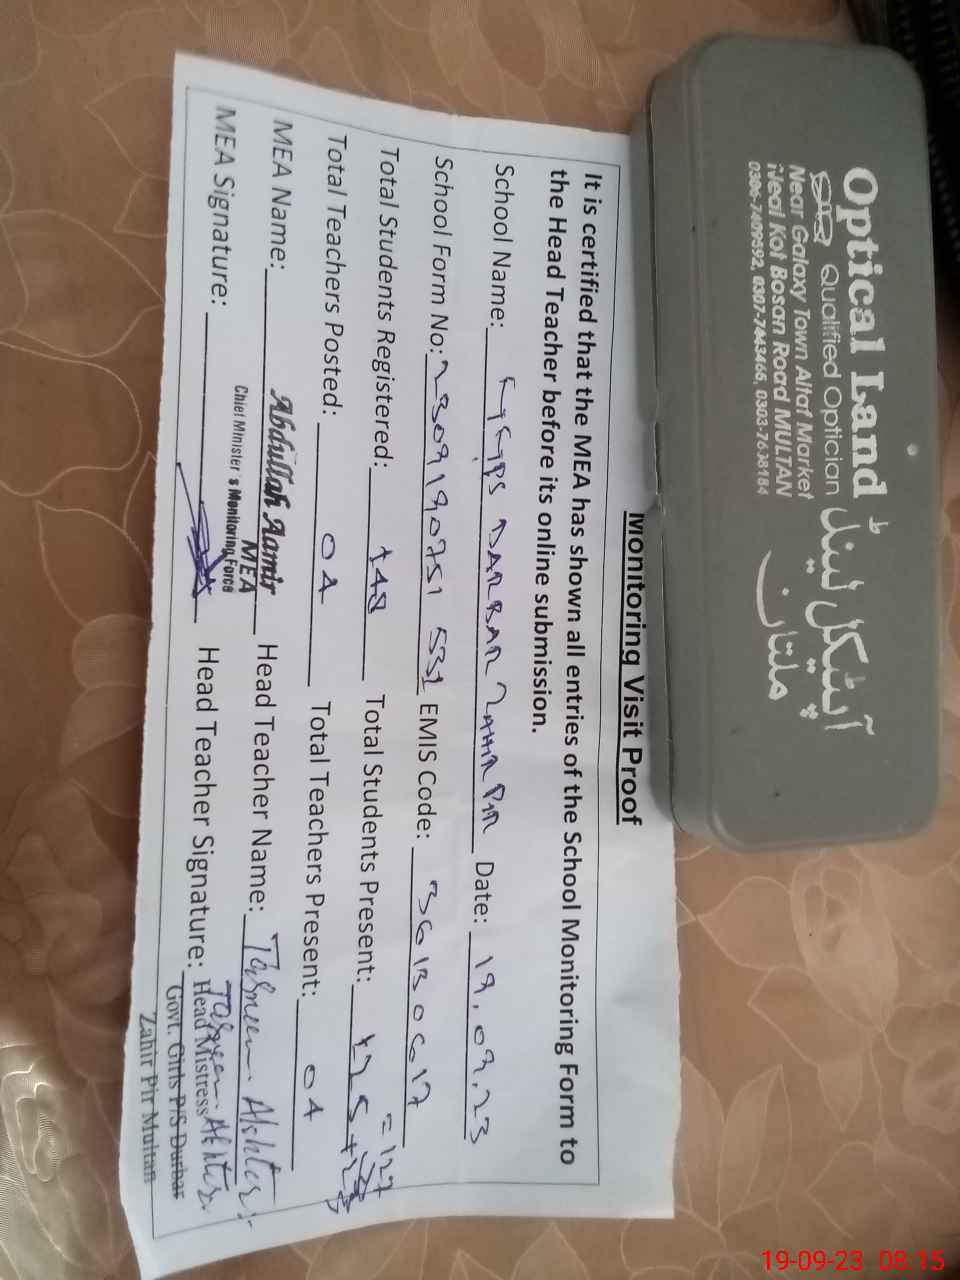 Optical Land آپٹیکل لینڈ
Qualified Optician ملتان
Near Galaxy Town Altaf Market
Neal Kot Bosan Road MULTAN
0306-7409592, 0307-7443465, 0303-7638184
Monitoring Visit Proof
It is certified that the MEA has shown all entries of the School Monitoring Form to
the Head Teacher before its online submission.
School Name: GGPS DARBAR ZAHIR PIR Date: 19.09.23
School Form No: 2309190751531 EMIS Code: 36130617
Total Students Registered: 148 Total Students Present: = 127
Total Teachers Posted: 04 Total Teachers Present: 04
MEA Name: Abdullah Aamir Head Teacher Name: Tasneem Akhter
MEA
Chief Minister's Monitoring Force
MEA Signature: Head Teacher Signature: Tasneem Akhter
Head Mistress
Govt. Girls P/S Durbar
Zahir Pir Multan
19-09-23 08:15